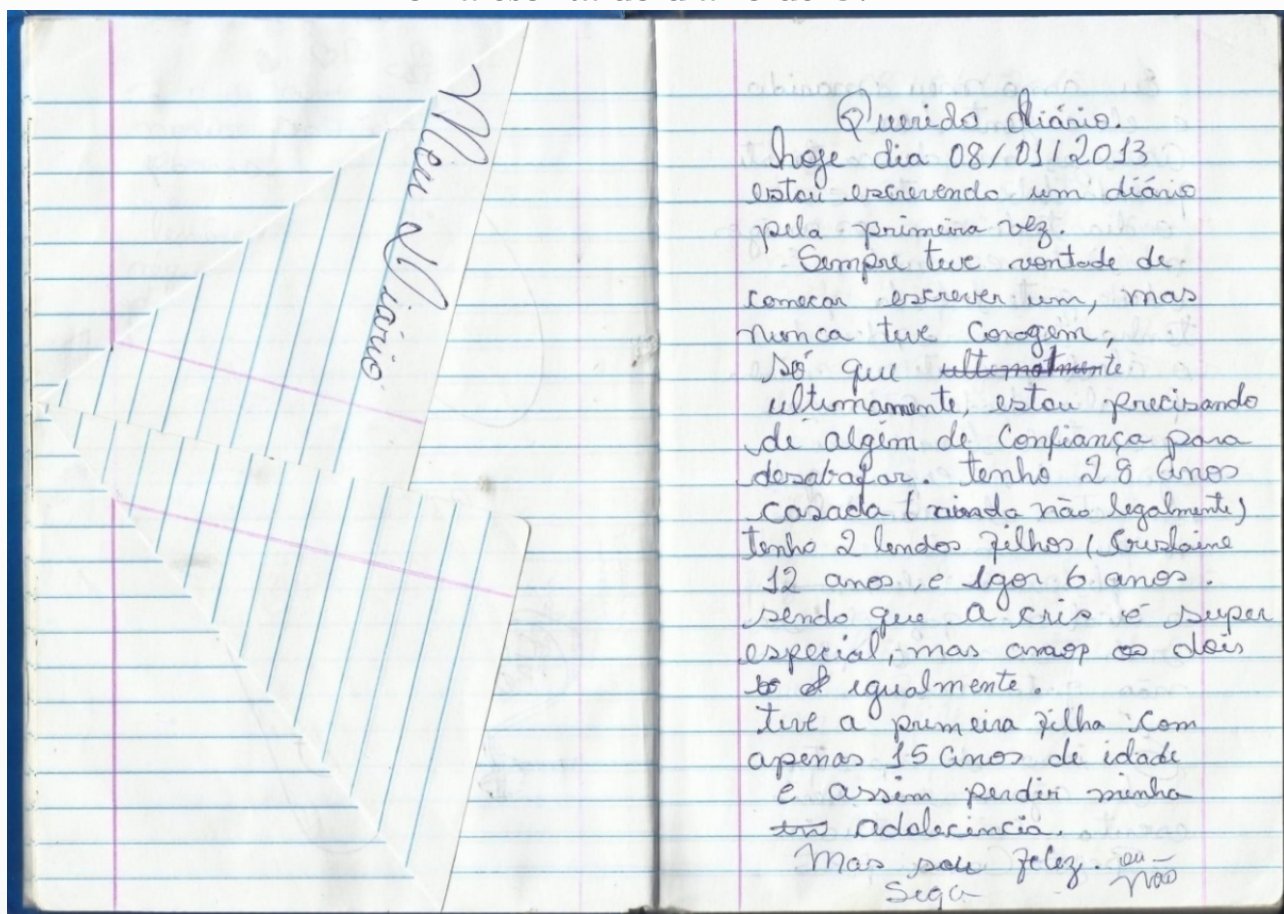 Meu Diário
Querido diário.
hoje dia 08/01/2013
estou escrevendo um diário
pela primeira vez.
Sempre tive vontade de
começar escrever um, mas
nunca tive coragem,
só que ultimamente
ultimamente, estou precisando
de algém de confiança para
desabafar. tenho 28 anos
casada (ainda não legalmente)
tenho 2 lendos filhos (Cruslaine
12 anos, e Igor 6 anos.
sendo que a cris é super
especial, mas amos os dois
igualmente.
tive a primeira filha com
apenas 15 anos de idade
e assim perdir minha
adolecência.
Mas sou feliz. ou
não
Sega